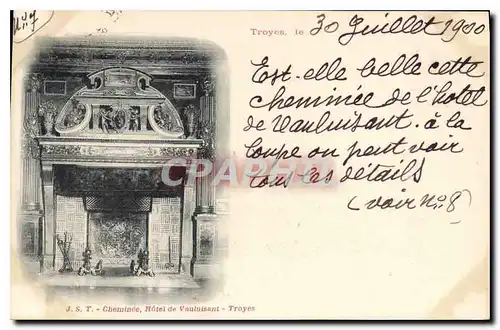 N:7
Troyes, le 30 Juillet 1900
Est-elle belle cette
cheminée de l'hôtel
de Vauluisant. à la
loupe on peut voir
tous les détails
(voir N:8)
CARTES
J. S. T. - Cheminée, Hôtel de Vauluisant - Troyes